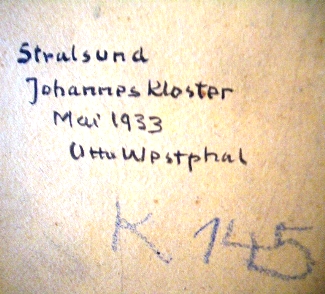 Stralsund
Johanneskloster
Mai 1933
Otto Westphal
K 145